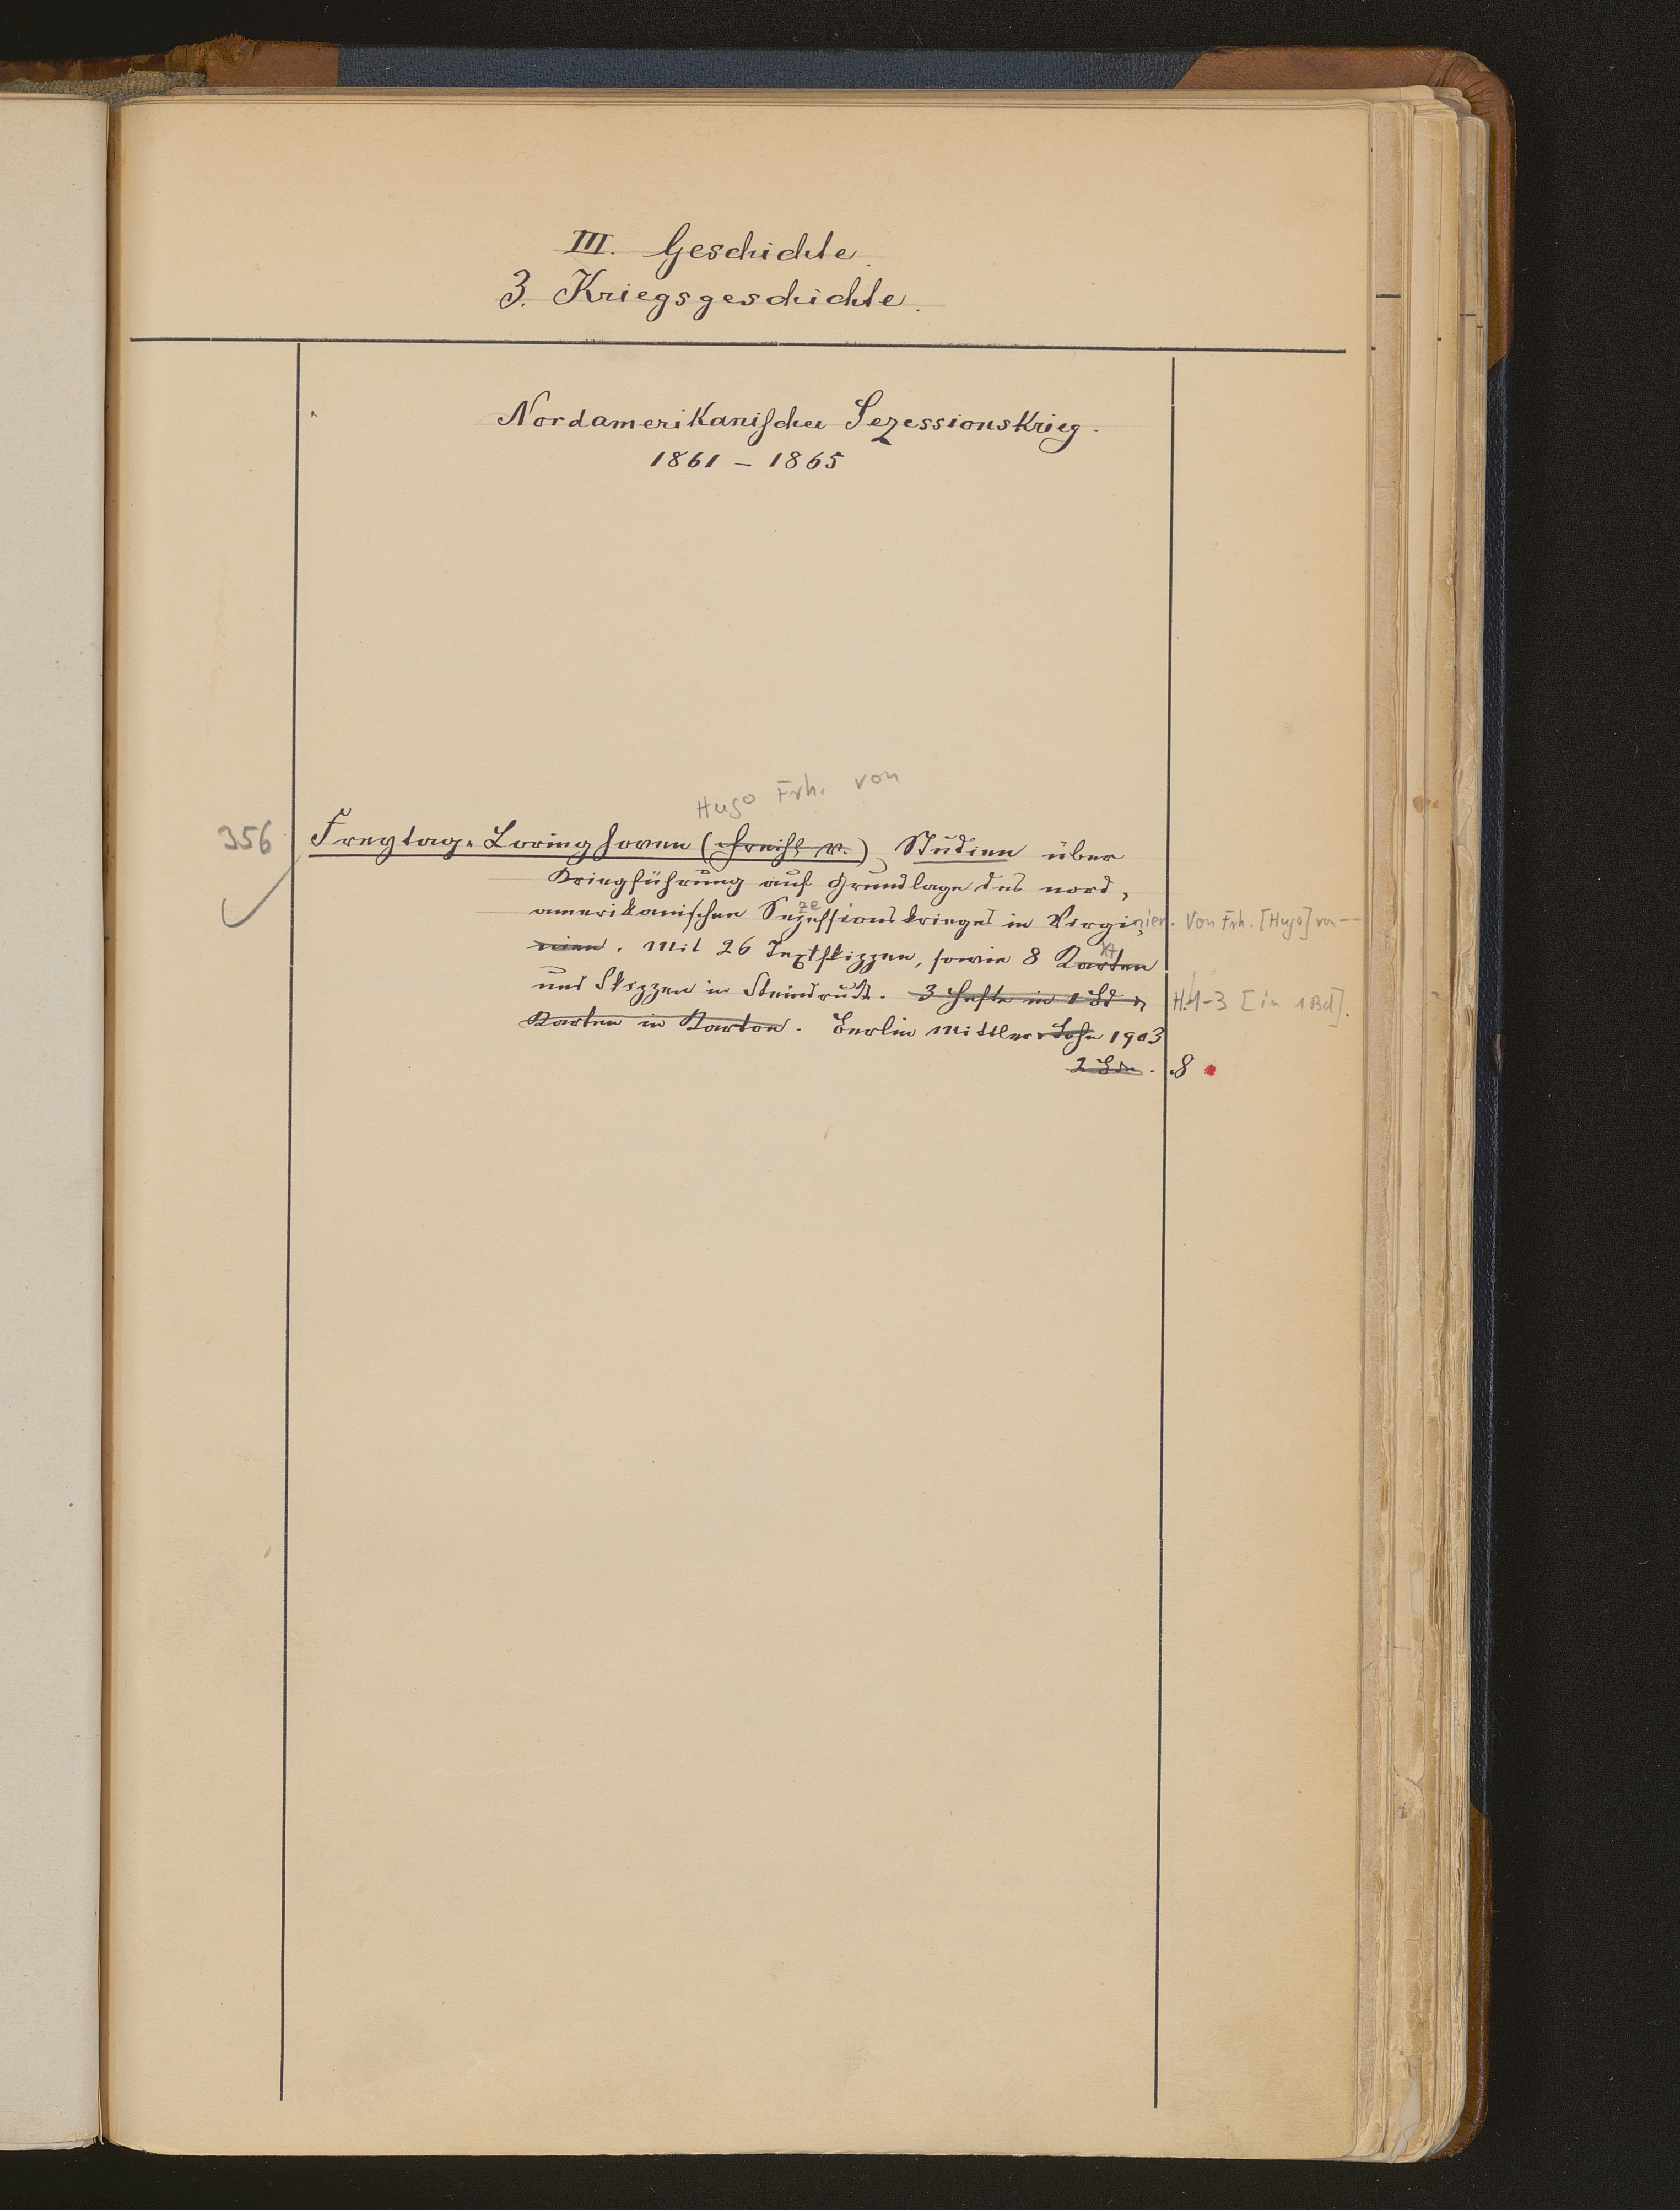 III. Geschichte.
3. Kriegsgeschichte.
Nordamerikanischer Sezessionskrieg.
1861 – 1865
Hugo Frh. von
356 Freytag-Loringhoven (Freih. v.) Studien über
Kriegführung auf Grundlage des nord-
amerikanischen Sezessionskrieges in Virginien. Von Frh. [Hugo] von --
ze
nien. Mit 26 Textskizzen, sowie 8 Karten
Kt
und Skizzen in Steindruck. 3 Hefte in 1 Bd H. 1-3 [in 1 Bd].
Karten in Karton. Berlin Mittler & Sohn 1903
2 Bde. 8